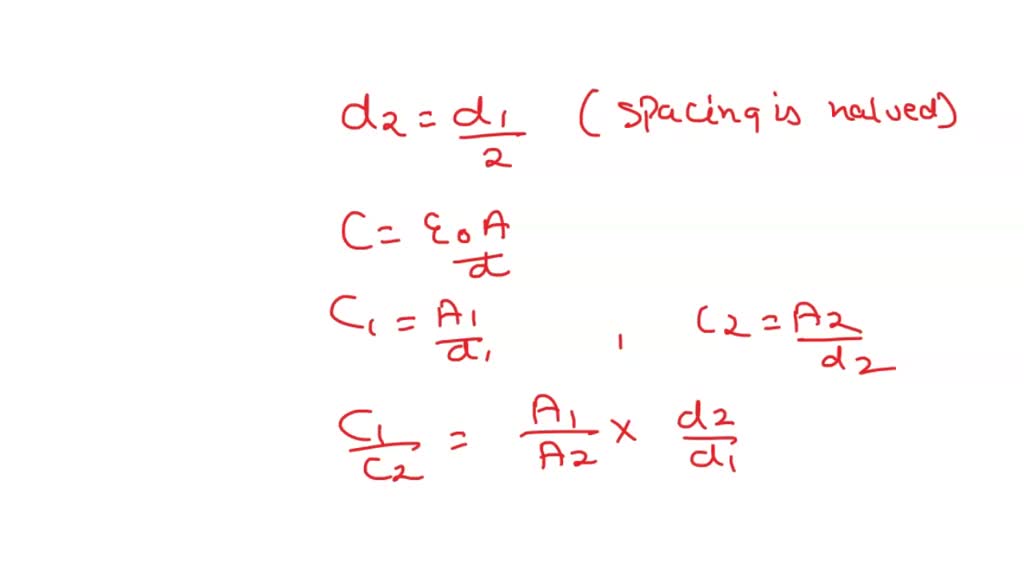 d2 = d1/2 (spacing is halved)
C = ε0 A/d
C1 = A1/d1 , C2 = A2/d2
C1/C2 = A1/A2 × d2/d1